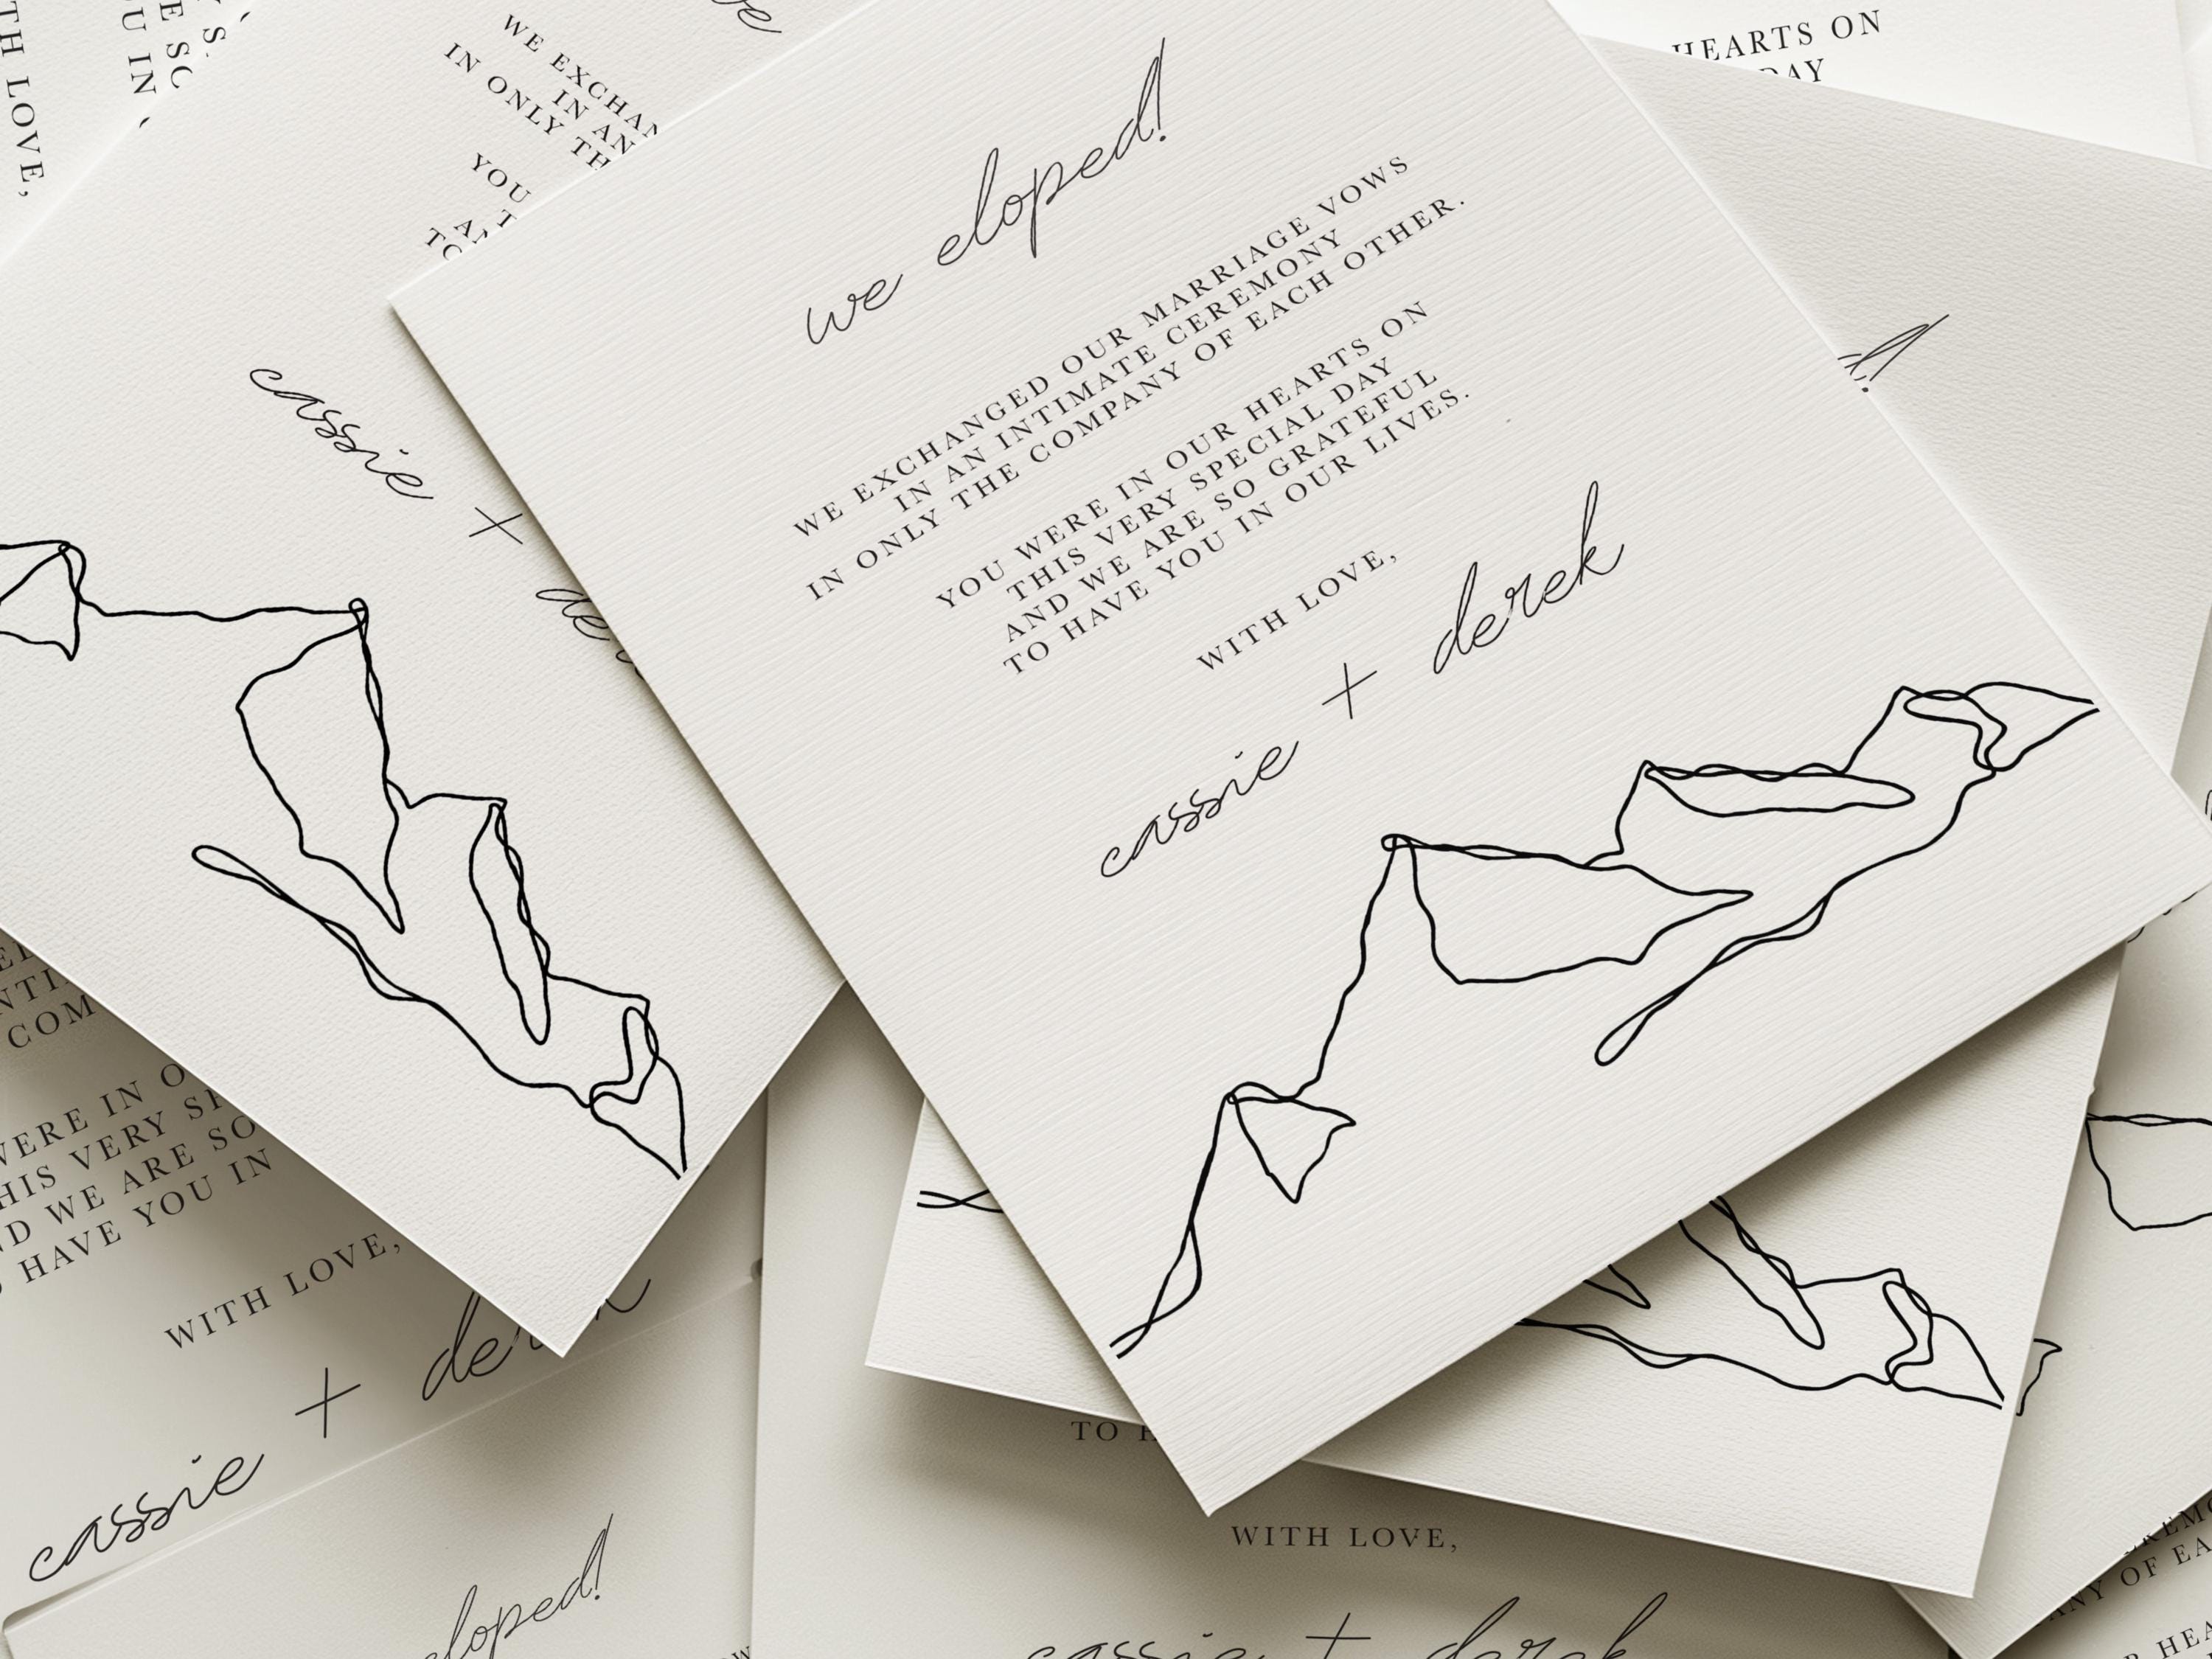 we eloped!
WE EXCHANGED OUR MARRIAGE VOWS
IN AN INTIMATE CEREMONY
IN ONLY THE COMPANY OF EACH OTHER.
YOU WERE IN OUR HEARTS ON
THIS VERY SPECIAL DAY
AND WE ARE SO GRATEFUL
TO HAVE YOU IN OUR LIVES.
WITH LOVE,
cassie + derek
WE
IN AN
IN ONLY
YOU
cassie +
LOVE,
HEARTS ON
DAY
WERE IN
VERY
WE ARE SO
HAVE YOU IN
WITH LOVE,
cassie + derek
eloped!
TO
WITH LOVE,
cassie + derek
OF